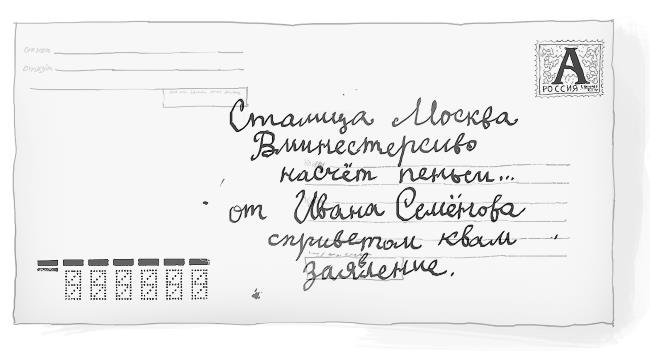 А
РОССИЯ
Сталица Москва
Вминестерсиво
насчёт пеньси...
от Ивана Семёнова
сприветом квам
Заявление.